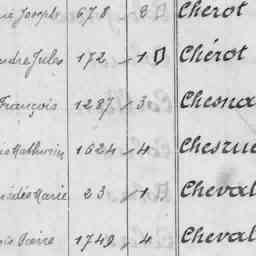 Joseph 678 8 Cherot
Jules 172 1 Chérot
François 1287 3 Chesna
Mathurin 1624 4 Chesnue
Marie 23 1 Cheval
Pierre 1749 4 Cheval